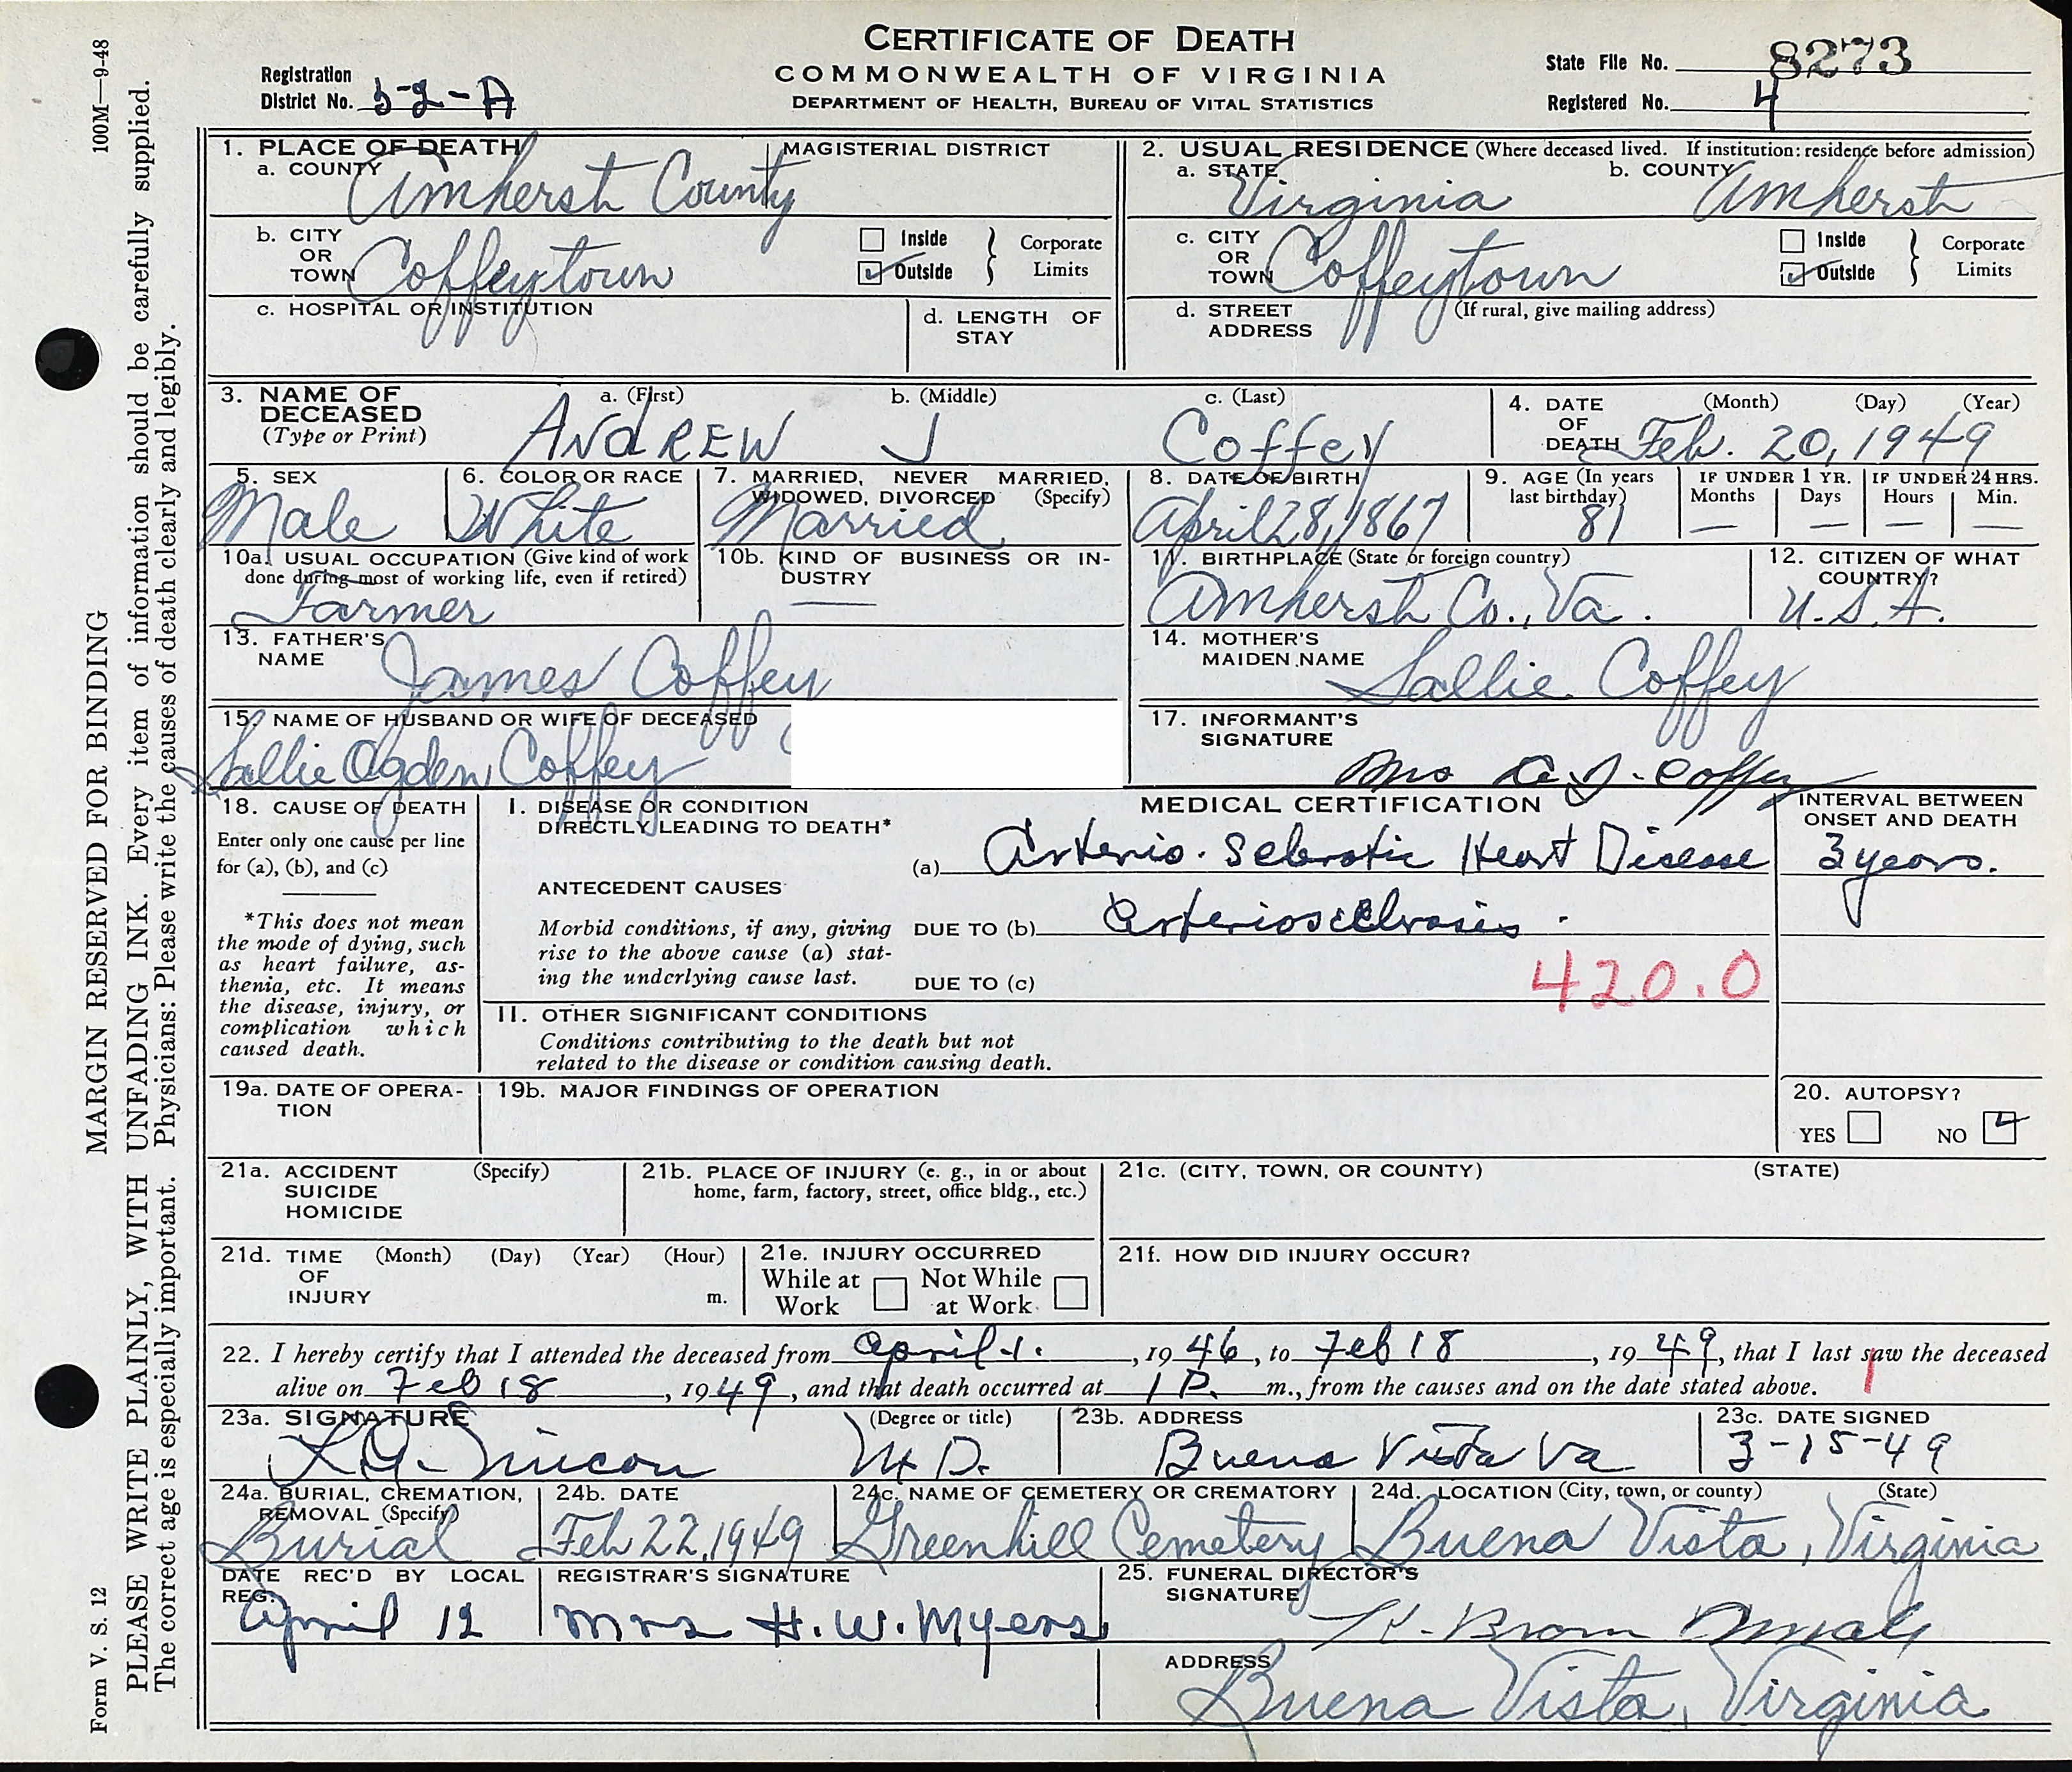 CERTIFICATE OF DEATH
COMMONWEALTH OF VIRGINIA
DEPARTMENT OF HEALTH, BUREAU OF VITAL STATISTICS
Registration District No. 52-A
State File No. 8273
Registered No. 4
100M—9-48
MARGIN RESERVED FOR BINDING
PLEASE WRITE PLAINLY, WITH UNFADING INK. Every item of information should be carefully supplied.
The correct age is especially important. Physicians: Please write the causes of death clearly and legibly.
Form V. S. 12
1. PLACE OF DEATH
a. COUNTY Amherst County
MAGISTERIAL DISTRICT
b. CITY OR TOWN Coffeytown
Inside
Outside
Corporate Limits
c. HOSPITAL OR INSTITUTION
d. LENGTH OF STAY
2. USUAL RESIDENCE (Where deceased lived. If institution: residence before admission)
a. STATE Virginia
b. COUNTY Amherst
c. CITY OR TOWN Coffeytown
Inside
Outside
Corporate Limits
d. STREET ADDRESS
(If rural, give mailing address)
3. NAME OF DECEASED
(Type or Print)
a. (First) ANdREW
b. (Middle) J
c. (Last) Coffey
4. DATE OF DEATH
(Month) (Day) (Year)
Feb. 20, 1949
5. SEX
Male
6. COLOR OR RACE
White
7. MARRIED, NEVER MARRIED, WIDOWED, DIVORCED (Specify)
Married
8. DATE OF BIRTH
April 28, 1867
9. AGE (In years last birthday)
81
IF UNDER 1 YR.
Months — Days —
IF UNDER 24 HRS.
Hours — Min. —
10a. USUAL OCCUPATION (Give kind of work done during most of working life, even if retired)
Farmer
10b. KIND OF BUSINESS OR INDUSTRY
—
11. BIRTHPLACE (State or foreign country)
Amherst Co., Va.
12. CITIZEN OF WHAT COUNTRY?
U.S.A.
13. FATHER'S NAME
James Coffey
14. MOTHER'S MAIDEN NAME
Sallie Coffey
15. NAME OF HUSBAND OR WIFE OF DECEASED
Sallie Ogden Coffey
17. INFORMANT'S SIGNATURE
Mrs A. J. Coffey
18. CAUSE OF DEATH
Enter only one cause per line for (a), (b), and (c)
*This does not mean the mode of dying, such as heart failure, asthenia, etc. It means the disease, injury, or complication which caused death.
MEDICAL CERTIFICATION
INTERVAL BETWEEN ONSET AND DEATH
I. DISEASE OR CONDITION DIRECTLY LEADING TO DEATH*
(a) Arterio-Sclerotic Heart Disease
3 years.
ANTECEDENT CAUSES
Morbid conditions, if any, giving rise to the above cause (a) stating the underlying cause last.
DUE TO (b) Arteriosclerosis.
DUE TO (c)
420.0
II. OTHER SIGNIFICANT CONDITIONS
Conditions contributing to the death but not related to the disease or condition causing death.
19a. DATE OF OPERATION
19b. MAJOR FINDINGS OF OPERATION
20. AUTOPSY?
YES NO
21a. ACCIDENT SUICIDE HOMICIDE (Specify)
21b. PLACE OF INJURY (e. g., in or about home, farm, factory, street, office bldg., etc.)
21c. (CITY, TOWN, OR COUNTY) (STATE)
21d. TIME OF INJURY (Month) (Day) (Year) (Hour) m.
21e. INJURY OCCURRED
While at Work
Not While at Work
21f. HOW DID INJURY OCCUR?
22. I hereby certify that I attended the deceased from April 1., 1946, to Feb 18, 1949, that I last saw the deceased
alive on Feb 18, 1949, and that death occurred at 1 P. m., from the causes and on the date stated above.
1
23a. SIGNATURE (Degree or title)
M D.
23b. ADDRESS
Buena Vista Va
23c. DATE SIGNED
3-15-49
24a. BURIAL, CREMATION, REMOVAL (Specify)
Burial
24b. DATE
Feb 22, 1949
24c. NAME OF CEMETERY OR CREMATORY
Greenhill Cemetery
24d. LOCATION (City, town, or county) (State)
Buena Vista, Virginia
DATE REC'D BY LOCAL REG.
April 12
REGISTRAR'S SIGNATURE
Mrs H. W. Myers
25. FUNERAL DIRECTOR'S SIGNATURE
ADDRESS
Buena Vista, Virginia